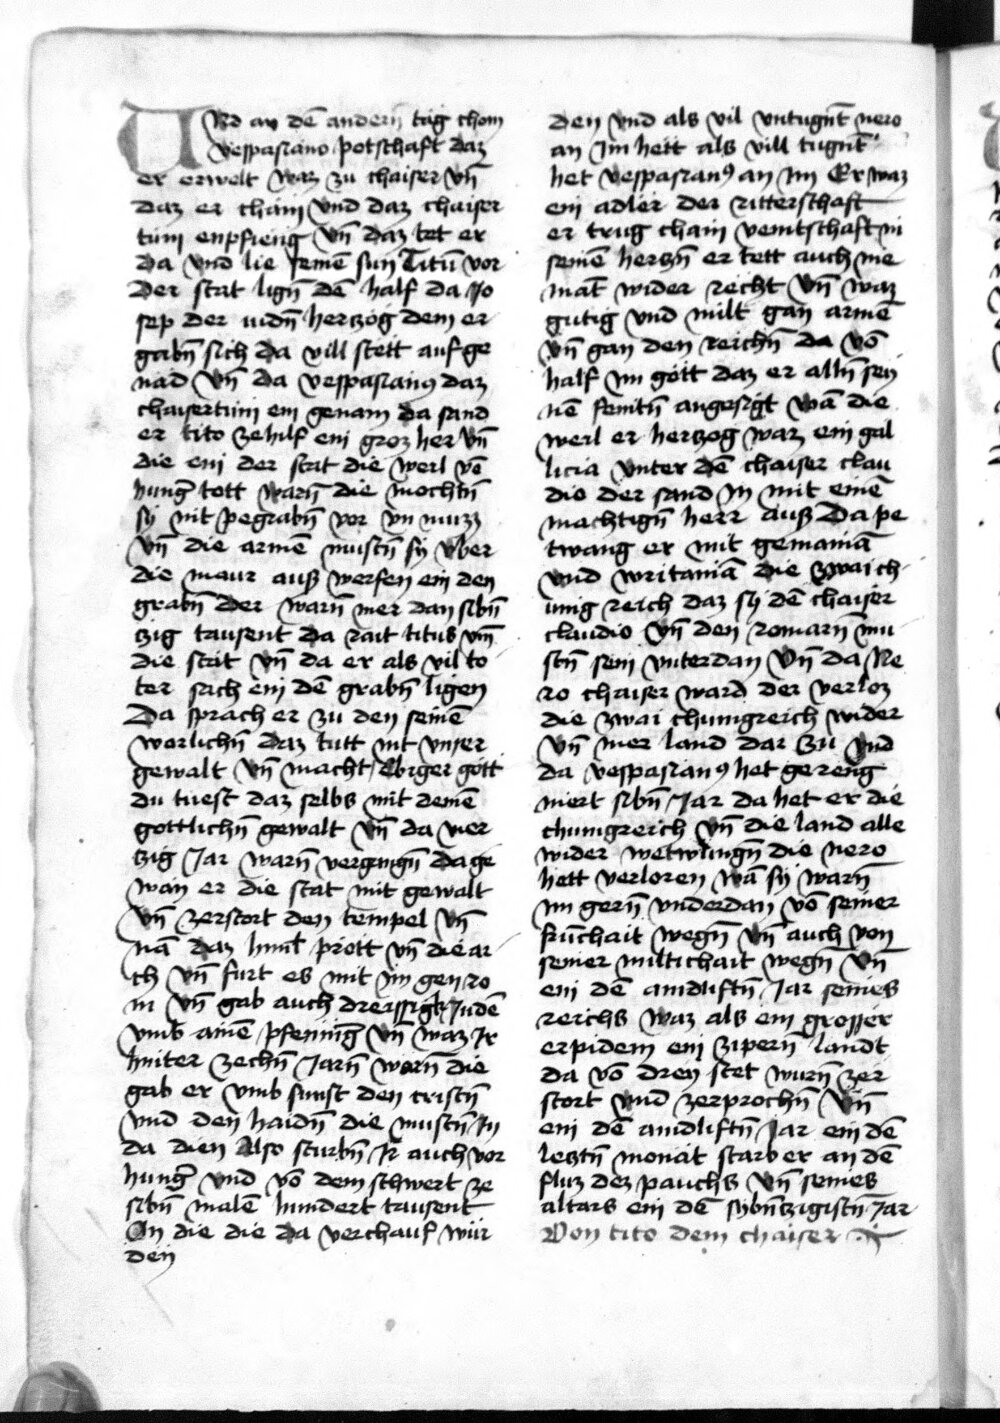 Und an dē andern tag chom
vespasiano potschaft daz
er erwelt waz zu chaiser vn̄
daz er cham vnd daz chaiser
tum enpfieng Vn̄ daz tet er
da vnd lie seinē sun Titū vor
der stat lign̄ dē half da Jo
sep der iudn̄ hertzog dem er
gabn̄ sich da vill stett auf ge
nad Vn̄ da vespasianꝰ daz
chaisertum ein genam da sand
er tito zehilf ein groz her vn̄
die ein der stat die weil vō
hunḡ tott warn̄ die mochtn̄
sy nit pegrabn̄ vor vn muzz
vn̄ die armē mustn̄ sy vber
die maur auß werfen ein den
grabn̄ der warn̄ mer dan sibn̄
zig tausent da rait titus vm̄
die stat vn̄ da er als vil to
ter sach ein dē grabn̄ ligen
Da sprach er zu den seinē
worlichn̄ daz tutt nit vnser
gewalt vn̄ macht Ebiger gott
du tuest daz selbs mit deinē
gottlichn̄ gewalt vn̄ da vier
zig Jar warn̄ vergangn̄ da ge
wan er die stat mit gewalt
vn̄ zerstort den tempel vn̄
nā daz himl prott vn̄ die ar
ch vn̄ furt es mit im gen ro
m vn̄ gab auch dreissigk Judē
vmb ainē pfening vn̄ waz Ir
hinter zechn̄ Jarn̄ warn̄ die
gab er vmb sunst den cristn̄
vnd den haidn̄ die mustn̄ In
da dien Also sturbn̄ Ir auch vor
hunḡ vnd vō dem schwert ze
sibn̄ malē hundert tausent
On die die da verchauf wur
den
den vnd als vil vntugn̄t nero
an Im hett als vill tugn̄t
het vespasianꝰ an im Er waz
ein adler der ritterschaft
er trug chain veintschaft in
seinē herzn̄ er tett auch nie
māt wider recht Vn̄ waz
gutig vnd milt gan armē
vn̄ gan den reichn̄ da vō
half im gott daz er alln̄ sey
nē feintn̄ angesigt wā die
weil er hertzog waz ein gal
licia vnter dē chaiser clau
dio der sand In mit einē
machtign̄ herr auß Da pe
twang er mit germaniā
vnd writaniā die zwai ch
unig reich daz sy dē chaiser
claudio vn̄ den romarn̄ mu
stn̄ sein vnterdan Vn̄ da Ne
ro chaiser ward der verloz
die zwai chunigreich wider
vn̄ mer land dar zu vnd
da vespasianꝰ het gereng
niert sibn̄ Jar da het er die
chunigreich vn̄ die land alle
wider wetwungn̄ die nero
hett verloren wā sy warn̄
im gern̄ vnderdan vō seiner
frūchait wegn̄ vn̄ auch von
seiner miltichait wegn̄ vn̄
ein dē aindliftn̄ Jar seines
reichs waz als ein grosser
erpidem ein zipern̄ landt
da vō drey stet wurn̄ zer
stort vnd zerprochn̄ Vn̄
ein dē aindliftn̄ Jar ein dē
lestn̄ monat starb er an dē
fluz dez pauchs vn̄ seines
altars ein dē sybn̄tzigistn̄ Jar
Von tito dem chaiser